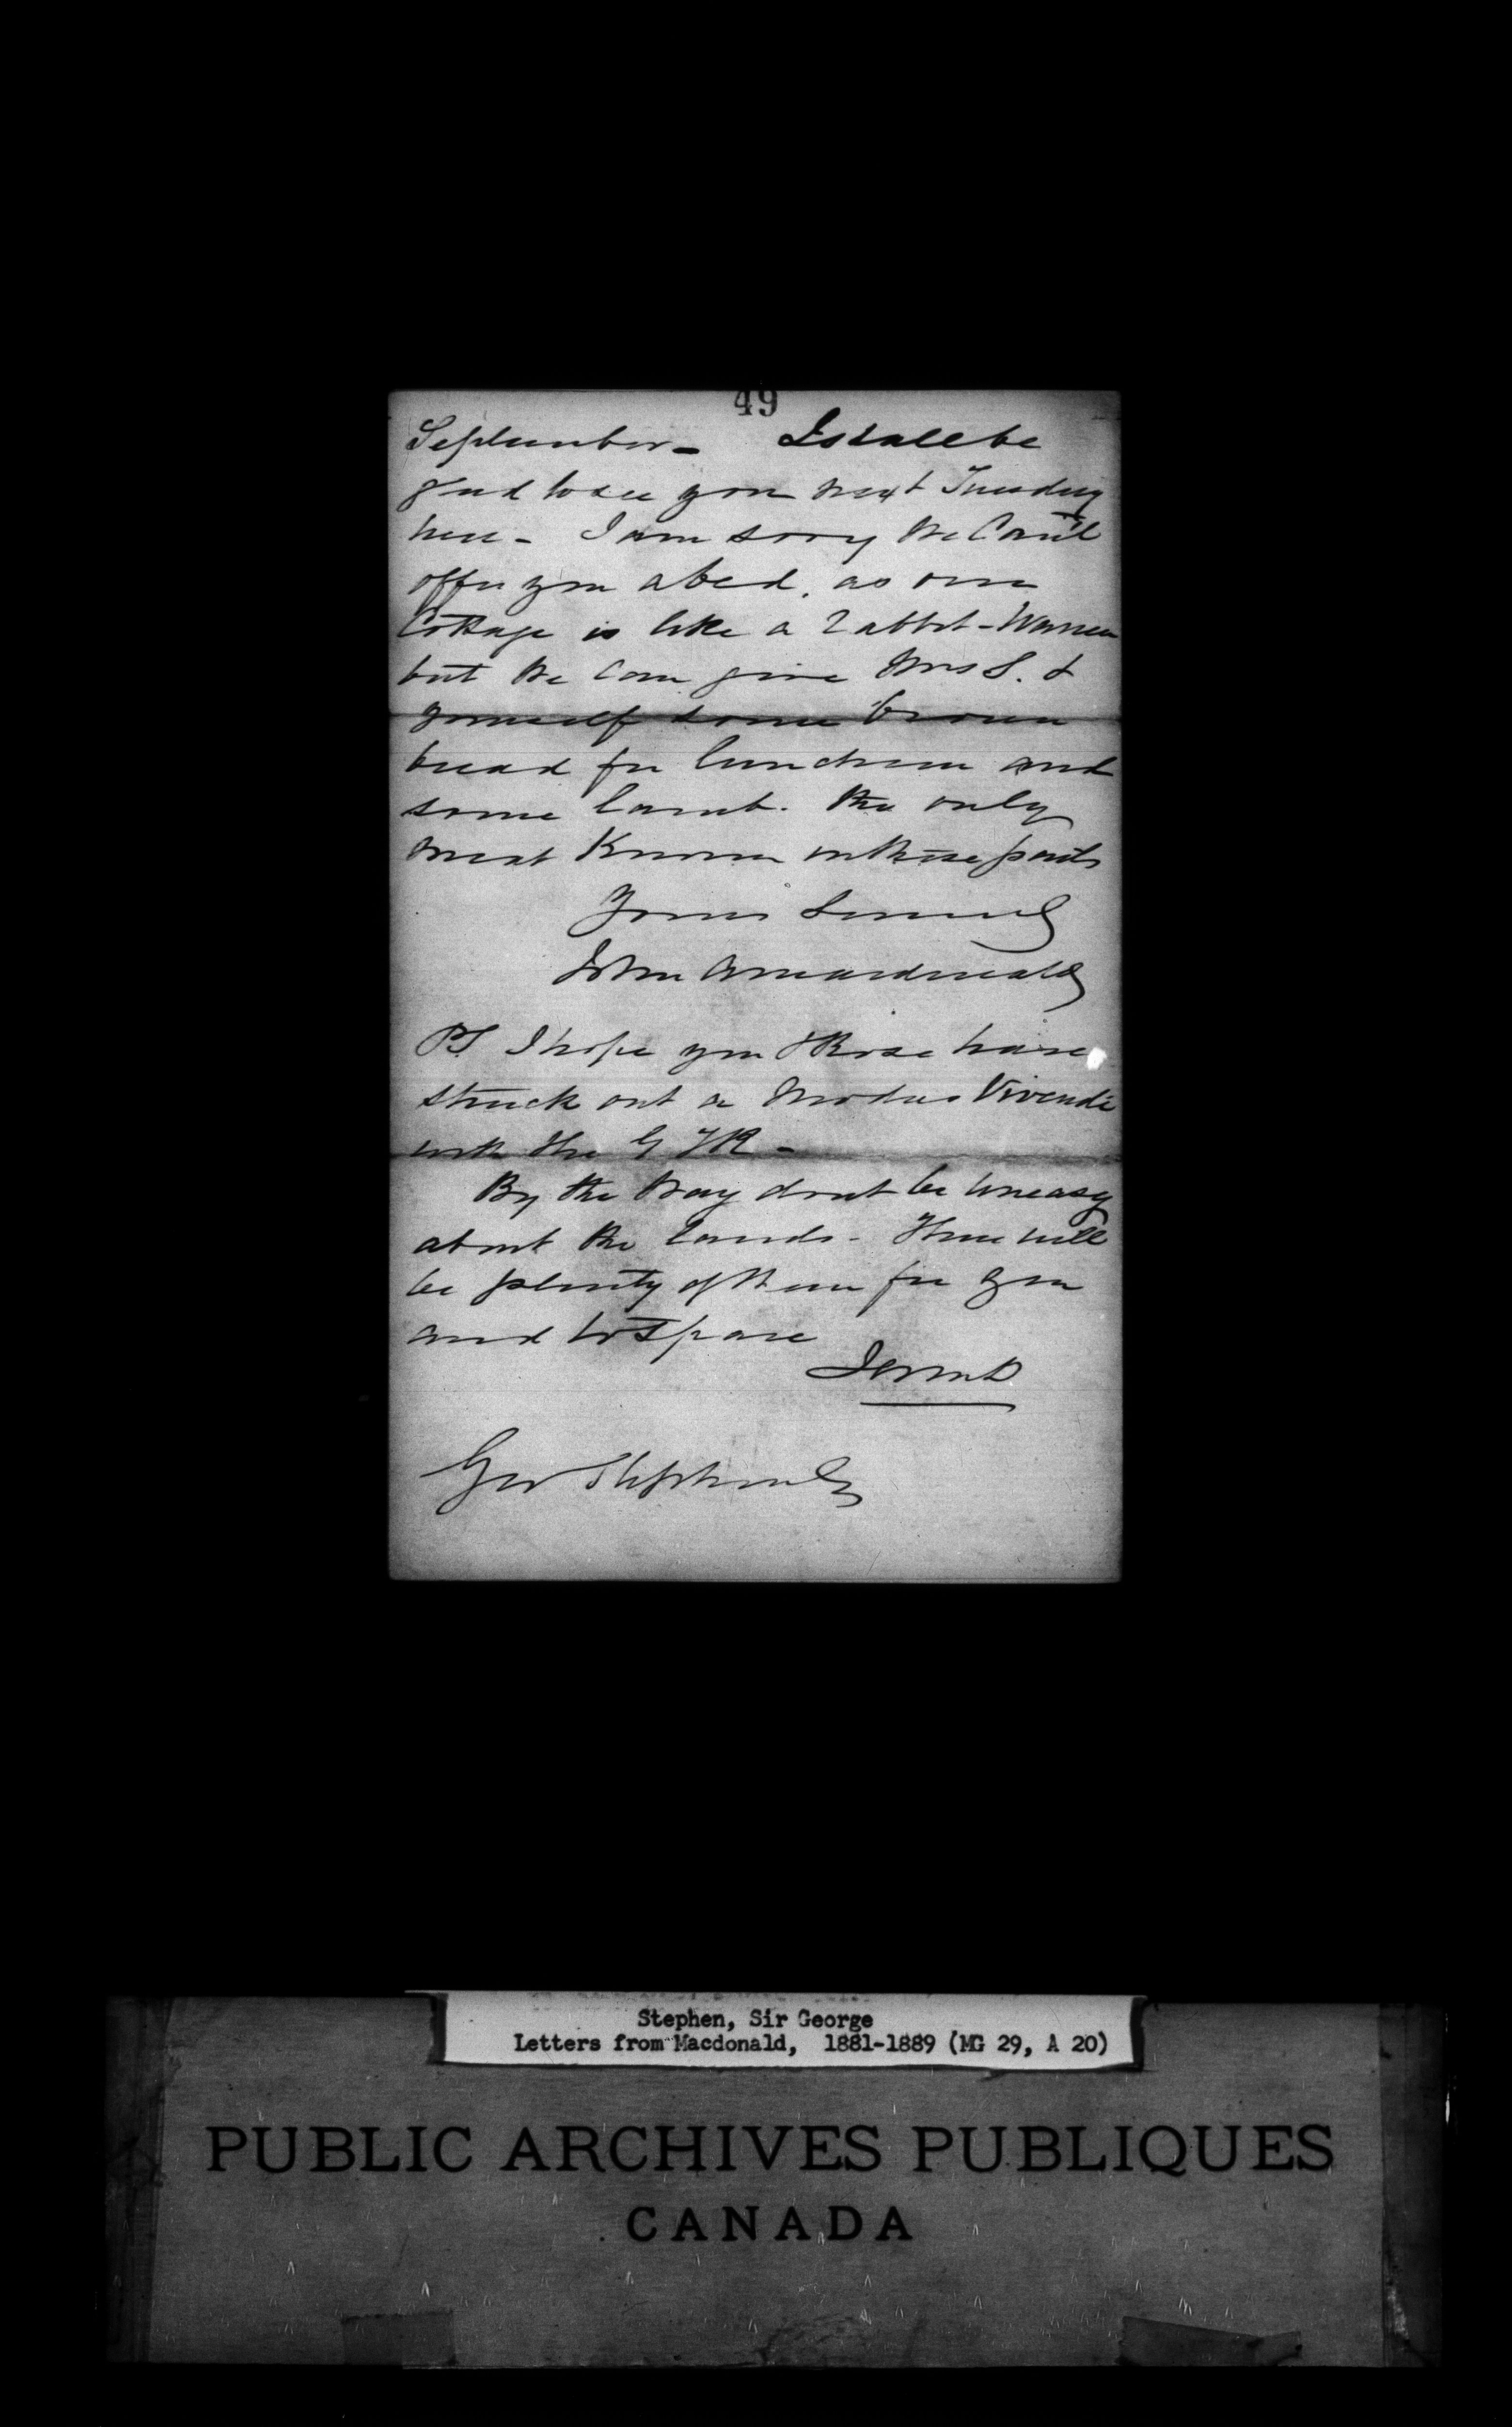 49
September - I shall be
glad to see you next Tuesday
here - I am sorry we Can't
offer you a bed, as our
Cottage is like a rabbit-Warren
but we Can give Mrs S. &
yourself some brown
bread for luncheon and
some lamb. the only
meat Known in these parts
Yours Sincerely
John A Macdonald
PS I hope you & Rose have
struck out a Modus Vivendi
with the G T R -
By the way dont be Uneasy
about the lands - There will
be plenty of them for you
and to Spare
JAMcD
Geo Stephen Esq
Stephen, Sir George
Letters from Macdonald, 1881-1889 (MG 29, A 20)
PUBLIC ARCHIVES PUBLIQUES
CANADA